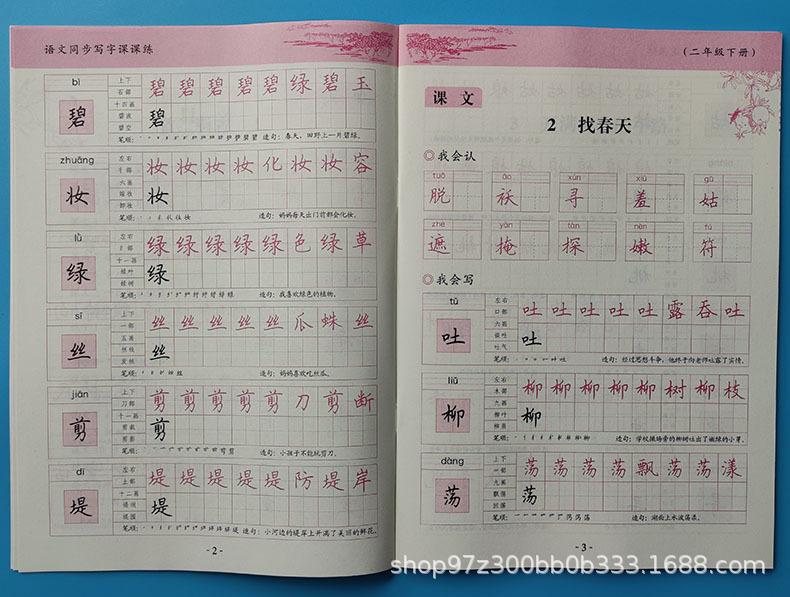 语文同步写字课课练
bì
碧
上下
石部
十四画
碧波
碧空
碧碧碧碧碧绿碧玉
碧
笔顺:
造句:春天,田野上一片碧绿。
zhuāng
妆
左右
六画
妆妆妆妆化妆妆容
妆
笔顺:
造句:妈妈每天出门前都会化妆。
lǜ
绿
左右
纟部
十一画
绿叶
绿树
绿绿绿绿绿色绿草
绿
笔顺:
造句:我喜欢绿色的植物。
sī
丝
上下
一部
五画
丝丝丝丝丝瓜蛛丝
丝
笔顺:
造句:妈妈喜欢吃丝瓜。
jiǎn
剪
上下
刀部
十一画
剪裁
剪影
剪剪剪剪剪刀剪断
剪
笔顺:
造句:小孩子不能玩剪刀。
dī
堤
左右
土部
十二画
堤坝
堤围
堤堤堤堤堤防堤岸
堤
笔顺:
造句:小河边的堤岸上开满了美丽的鲜花。
- 2 -
(二年级下册)
课文
2 找春天
我会认
tuō ǎo xún xiū gū
脱 袄 寻 羞 姑
zhē yǎn tàn nèn fú
遮 掩 探 嫩 符
我会写
tǔ
吐
左右
口部
六画
吐气
吐吐吐吐吐露吞吐
吐
笔顺:
造句:经过思想斗争,他终于向老师吐露了实情。
liǔ
柳
左右
木部
九画
柳叶
柳柳柳柳柳树柳枝
柳
笔顺:
造句:学校操场旁的柳树吐出了嫩绿的小芽。
dàng
荡
上下
九画
飘荡
回荡
荡荡荡荡飘荡荡漾
荡
笔顺:
造句:湖面上水波荡漾。
- 3 -
shop97z300bb0b333.1688.com